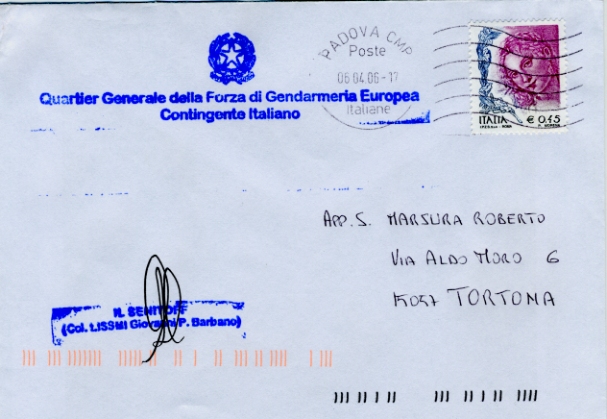 PADOVA CMP
Poste
06.04.06-17
Italiane
ITALIA € 0,45
Quartier Generale della Forza di Gendarmeria Europea
Contingente Italiano
APP. S. MARSURA ROBERTO
VIA ALDO MORO 6
15057 TORTONA
IL SENITOFF
(Col. t.ISSMI Giovanni P. Barbano)